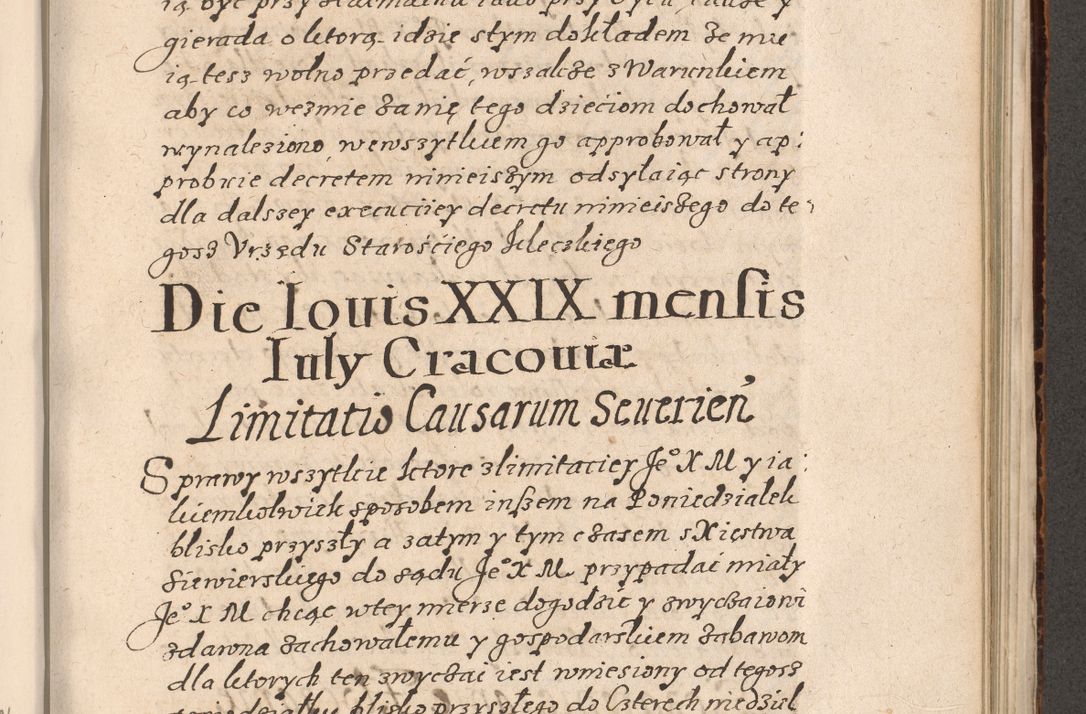 gierada o ktorą idzie stym dokładem że mu
ią tesz wolno przedać, wszakże z Warunkiem
aby co wezmie zanię tego dzieciom dochował
wynaleziono, wewszytkiem go approbował y ap:
probuie decretem ninieiszym odsyłaiąc strony
dla dalszey executiiey decretu ninieiszego do te
gosz Vrzędu Starościego Kleczkiego
Die Iouis XXIX mensis
Iuly Cracouiæ
Limitatio Causarum Seuerien̄
Sprawy wszytkie ktore zlimitaciey Je° X M y ia:
kiemkolwiek sposobem inszem na Poniedziałek
blisko przyszły a zatym y tym czasem sXięstwa
Siewierskiego do sądu Je° X M przypadać miały
Je° X M chcąc wtey mierze dogodzić y zwyczaiowi
zdawna zachowałemu y gospodarskiem zabawom
dla ktorych ten zwyczai iest wniesiony od tegosz
poniedziałku blisko przyszłego do Czterech niedziel